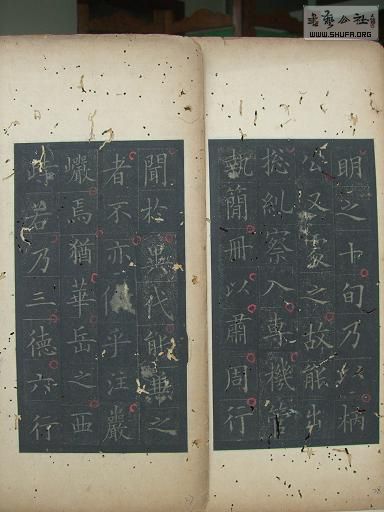 書藝公社
WWW.SHUFA.ORG
明之旬乃以柄
公又處之故能出
揔糺察入專機管
執簡冊以肅周行
聞於異代能兼之
者不亦乎注巖
巖焉猶華岳之西
峙若乃三德六行